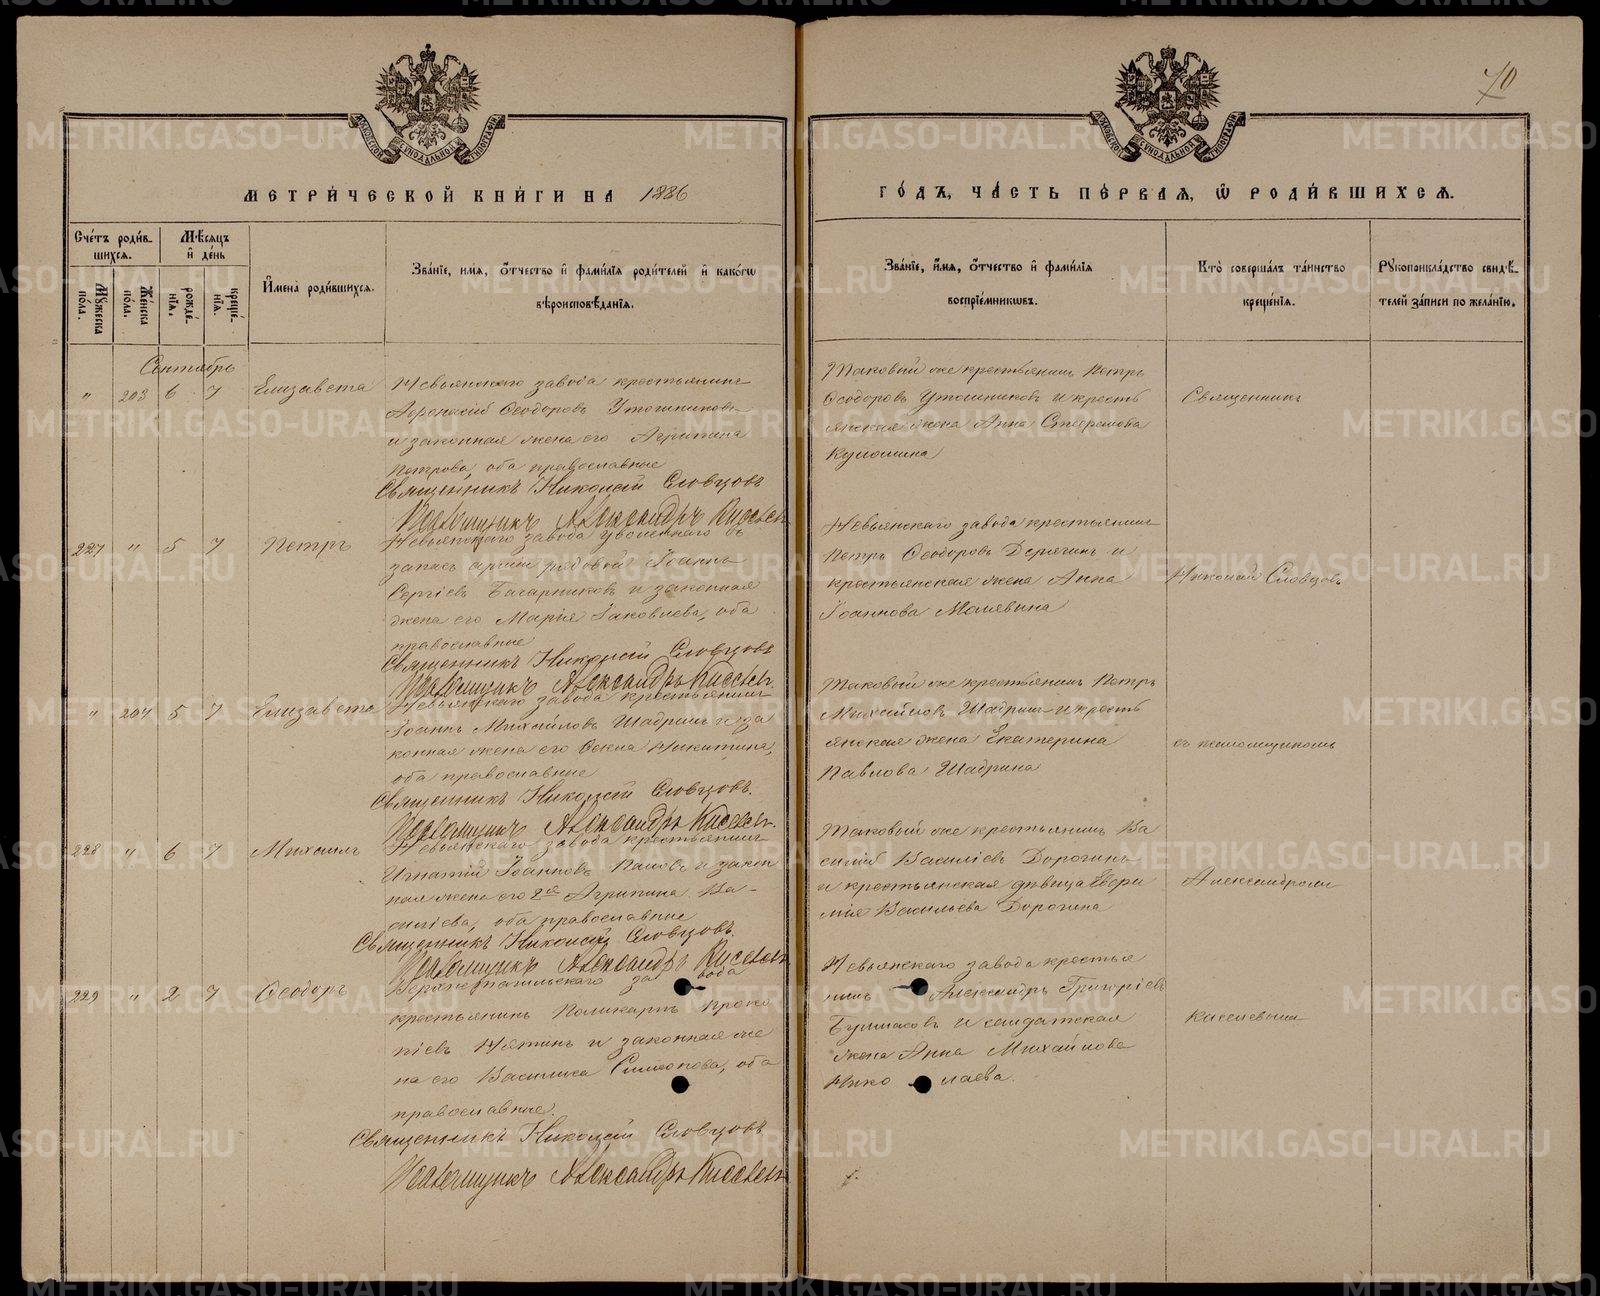 70
МЕТРИ́ЧЕСКОЙ КНИ́ГИ НА 1886
ГО́ДЪ, ЧА́СТЬ ПЕ́РВАЯ, Ѿ РОДИ́ВШИХСЯ.
Сче́тъ роди́в-
шихся.
Мꙋжеска по́ла.
Же́нска по́ла.
Мѣ́сяцъ
и҆ де́нь
рожде́-
нїя.
креще́-
нїя.
И҆мена̀ роди́вшихся.
Зва́нїе, и҆́мя, ѻ҆́тчество и҆ фами́лїя роди́телей и҆ како́гѡ
вѣроисповѣ́данїя.
Зва́нїе, и҆́мя, ѻ҆́тчество и҆ фами́лїя
воспрїе́мникѡвъ.
Кто̀ соверша́лъ та́инство
креще́нїя.
Рꙋкоприкла́дство свидѣ́-
телей за́писи по жела́нїю.
Сентябрь
" 203 6 7 Елизавета
Невьянскаго завода крестьянинъ
Афонасій Ѳеодоровъ Утюшниковъ
и законная жена его Агрипина
Петрова, оба православные
Священникъ Николай Словцовъ
Псаломщикъ Александръ Киселевъ
Таковый же крестьянинъ Петръ
Ѳеодоровъ Утюшниковъ и кресть
янская жена Анна Стефанова
Священникъ
227 " 5 7 Петръ
Невьянскаго завода уволеннаго въ
запасъ арміи рядовой Іоаннъ
Сергіевъ Бачарниковъ и законная
жена его Марія Іаковлева, оба
православные
Священникъ Николай Словцовъ
Псаломщикъ Александръ Киселевъ
Невьянскаго завода крестьянинъ
Петръ Ѳеодоровъ Дерягинъ и
крестьянская жена Анна
Іоаннова Малявина
Николай Словцовъ
" 204 5 7 Елизавета
Невьянскаго завода крестьянинъ
Іоаннъ Михайловъ Шадринъ и за
конная жена его Ѳекла Никитина,
оба православные
Священникъ Николай Словцовъ.
Псаломщикъ Александръ Киселевъ.
Таковый же крестьянинъ Петръ
Михайловъ Шадринъ и кресть
янская жена Екатерина
Павлова Шадрина
съ псаломщикомъ
228 " 6 7 Михаилъ
Невьянскаго завода крестьянинъ
Игнатій Іоанновъ и закон
ная жена его 2ая Агрипина Ва-
силіева, оба православные
Священникъ Николай Словцовъ.
Псаломщикъ Александръ Киселевъ.
Таковый же крестьянинъ Ва
силій Василіевъ Дорогинъ
и крестьянская дѣвица Евфи
мія Васильева Дорогина
Александромъ
229 " 2 7 Ѳеодоръ
Верхнетагильскаго завода
крестьянинъ Поликарпъ Проко
піевъ Нятинъ и законная же
на его Василиса Симеонова, оба
православные.
Священникъ Николай Словцовъ
Псаломщикъ Александръ Киселевъ
Невьянскаго завода крестья
нинъ Александръ Григоріевъ
Бурмасовъ и солдатская
жена Анна Михайлова
Николаева.
Киселевымъ
METRIKI.GASO-URAL.RU